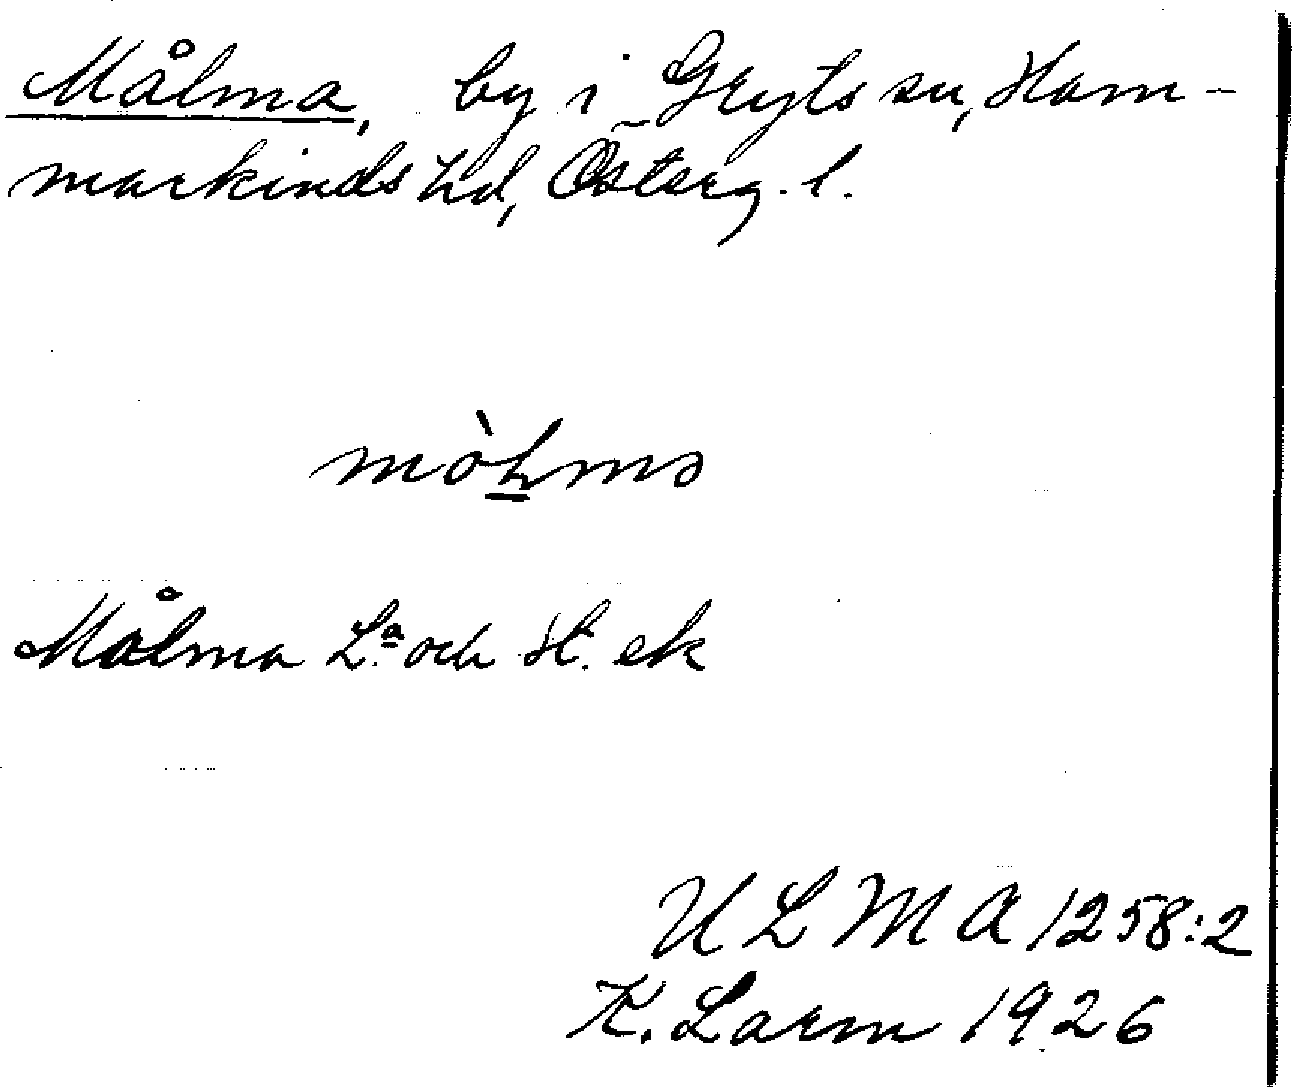 Målma, by i Gryts sn, Ham-
markinds hd, Österg. l.
Målma L:a och St. ek
ULMA 1258:2
K. Larm 1926